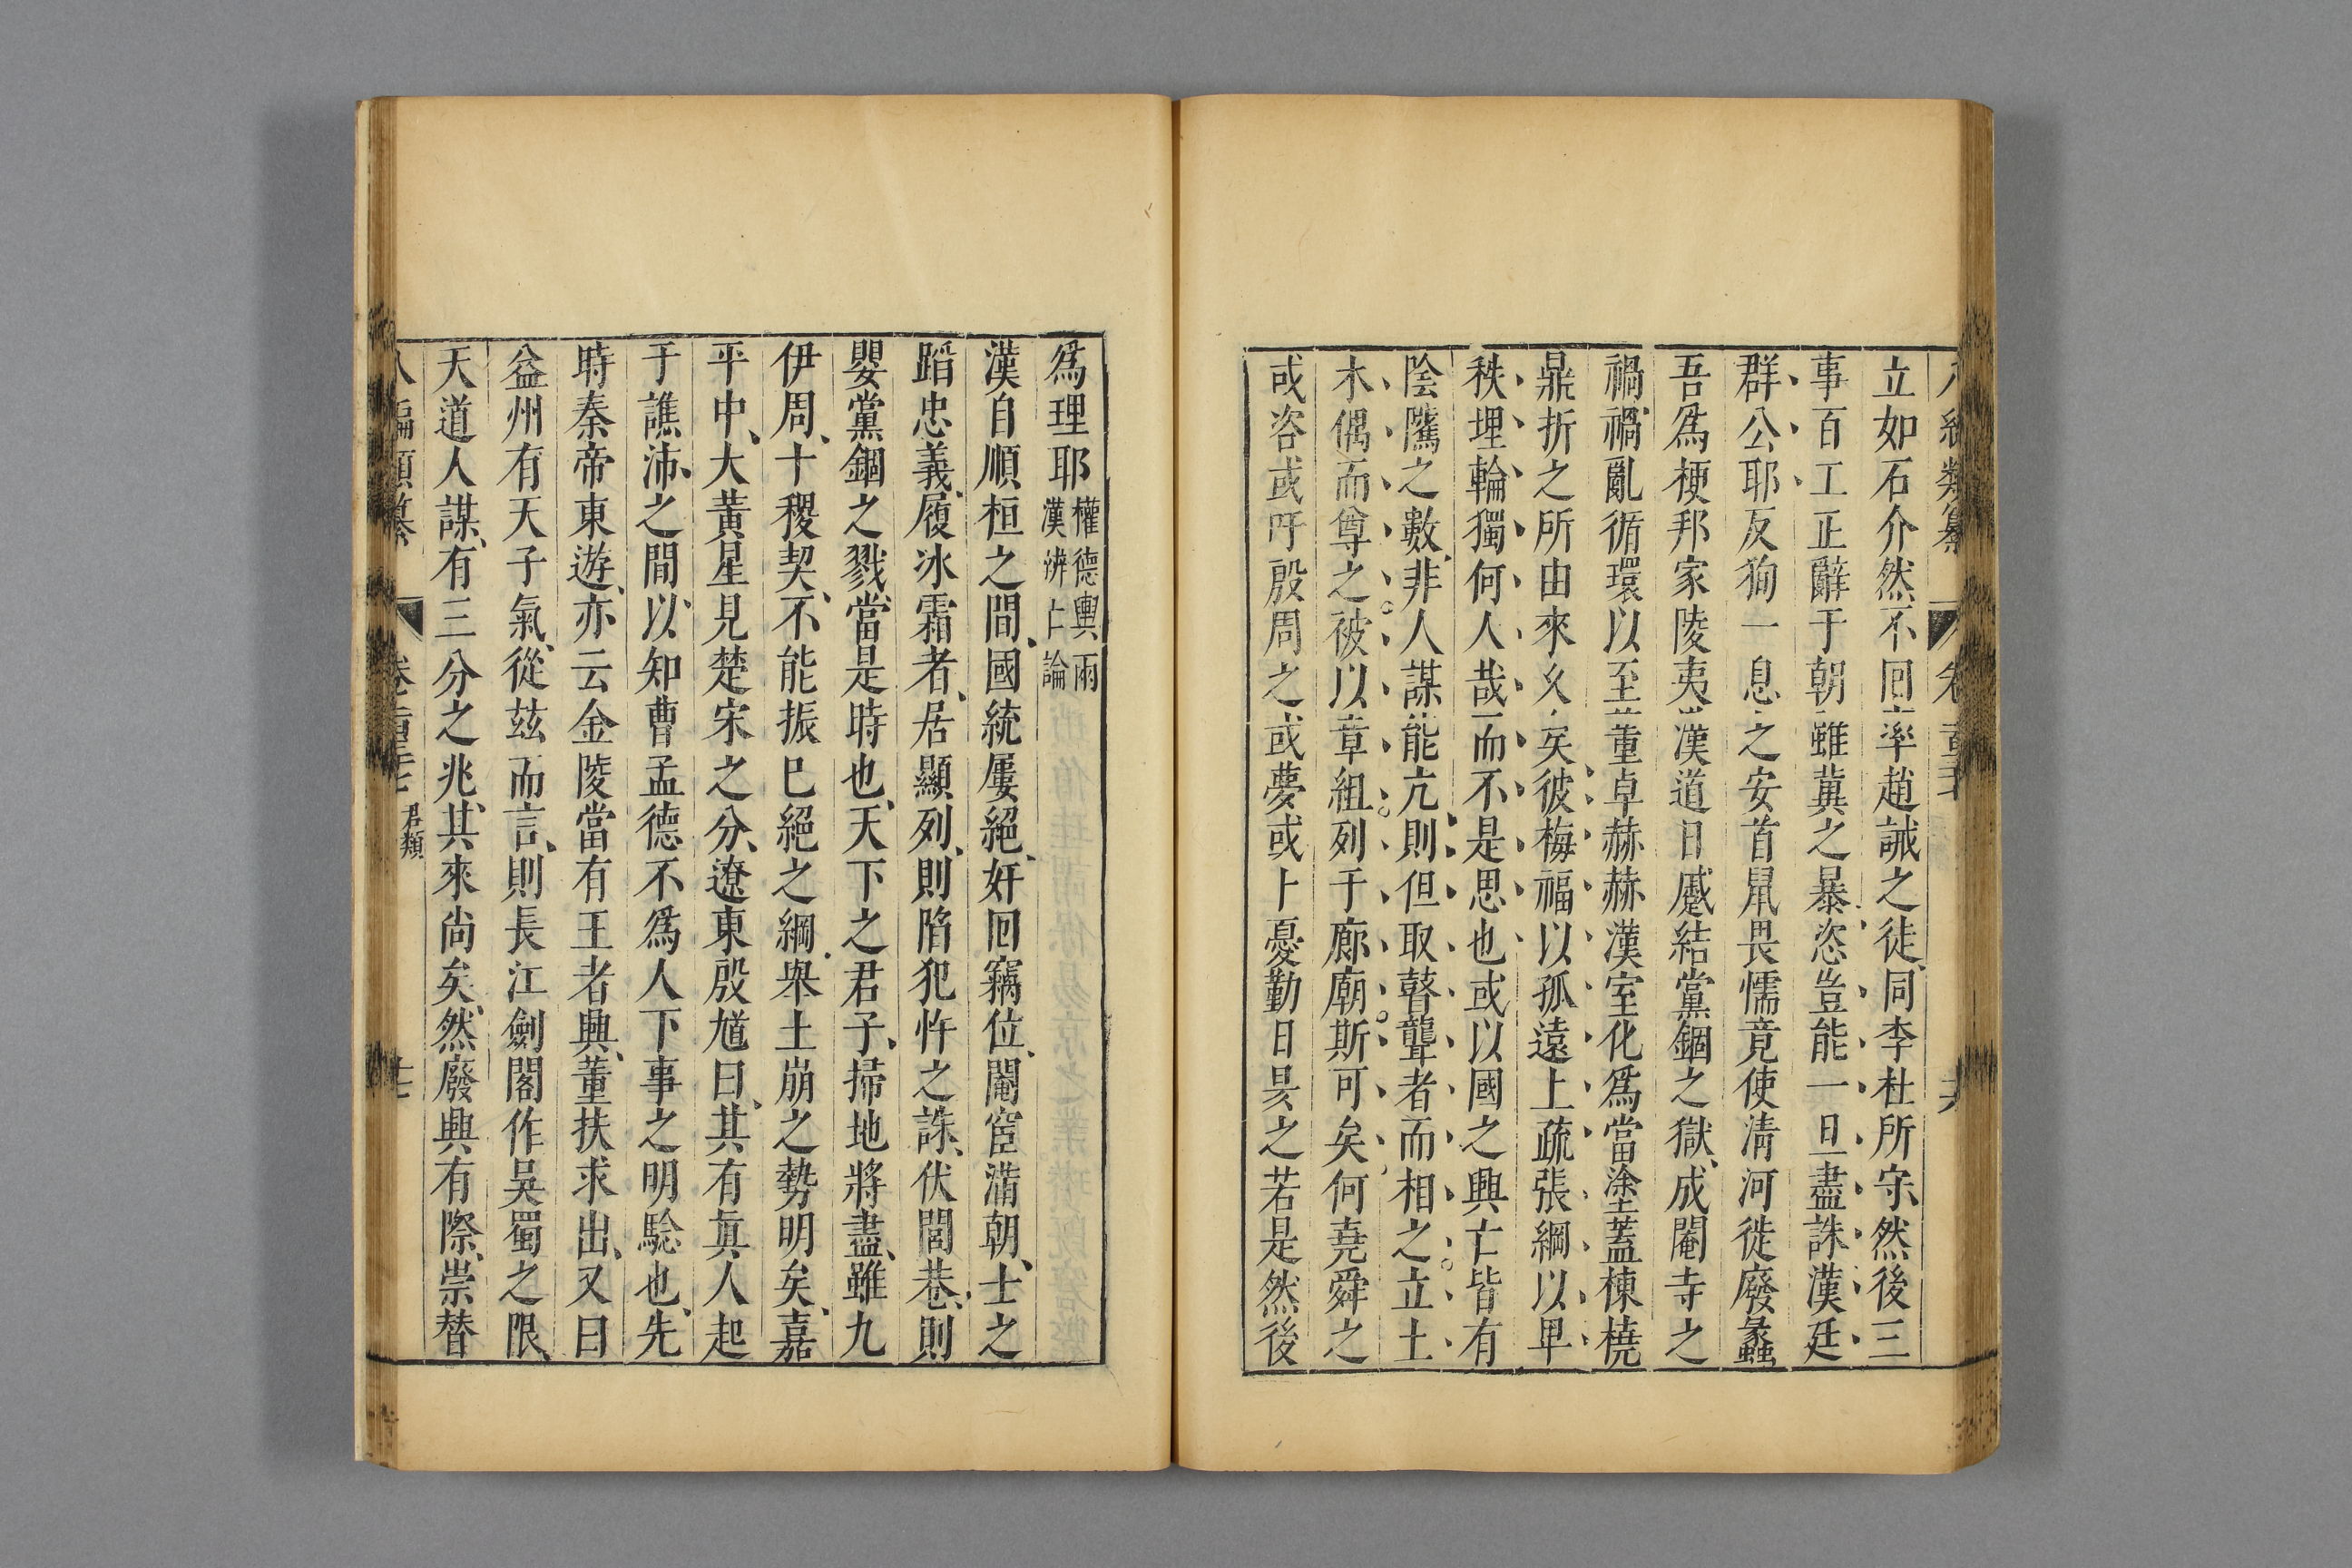 立如石介然不回率趙誠之徒同李杜所守然後三
事百工正辭于朝雖冀之暴恣豈能一旦盡誅漢廷
群公耶反狥一息之安首鼠畏懦竟使清河徙廢蠡
吾為梗邦家陵夷漢道日蹙結黨錮之獄成閹寺之
禍禍亂循環以至董卓赫赫漢室化為當塗蓋棟橈
鼎折之所由來久矣彼梅福以孤遠上疏張綱以卑
秩埋輪獨何人哉而不是思也或以國之興亡皆有
陰隲之數非人謀能亢則但取瞽聾者而相之立土
木偶而尊之被以章組列于廊廟斯可矣何堯舜之
或咨或吁殷周之或夢或卜憂勤日昃之若是然後
為理耶 權德輿兩漢辨亡論
漢自順桓之間國統屢絕奸回竊位閹宦滿朝士之
蹈忠義履冰霜者居顯列則陷犯忤之誅伏閭巷則
嬰黨錮之戮當是時也天下之君子掃地將盡雖九
伊周十稷契不能振已絕之綱舉土崩之勢明矣嘉
平中大黃星見楚宋之分遼東殷馗曰其有真人起
于譙沛之間以知曹孟德不為人下事之明驗也先
時秦帝東遊亦云金陵當有王者興董扶求出又曰
益州有天子氣從茲而言則長江劍閣作吳蜀之限
天道人謀有三分之兆其來尚矣然廢興有際崇替
八編類纂 卷 君類 十七